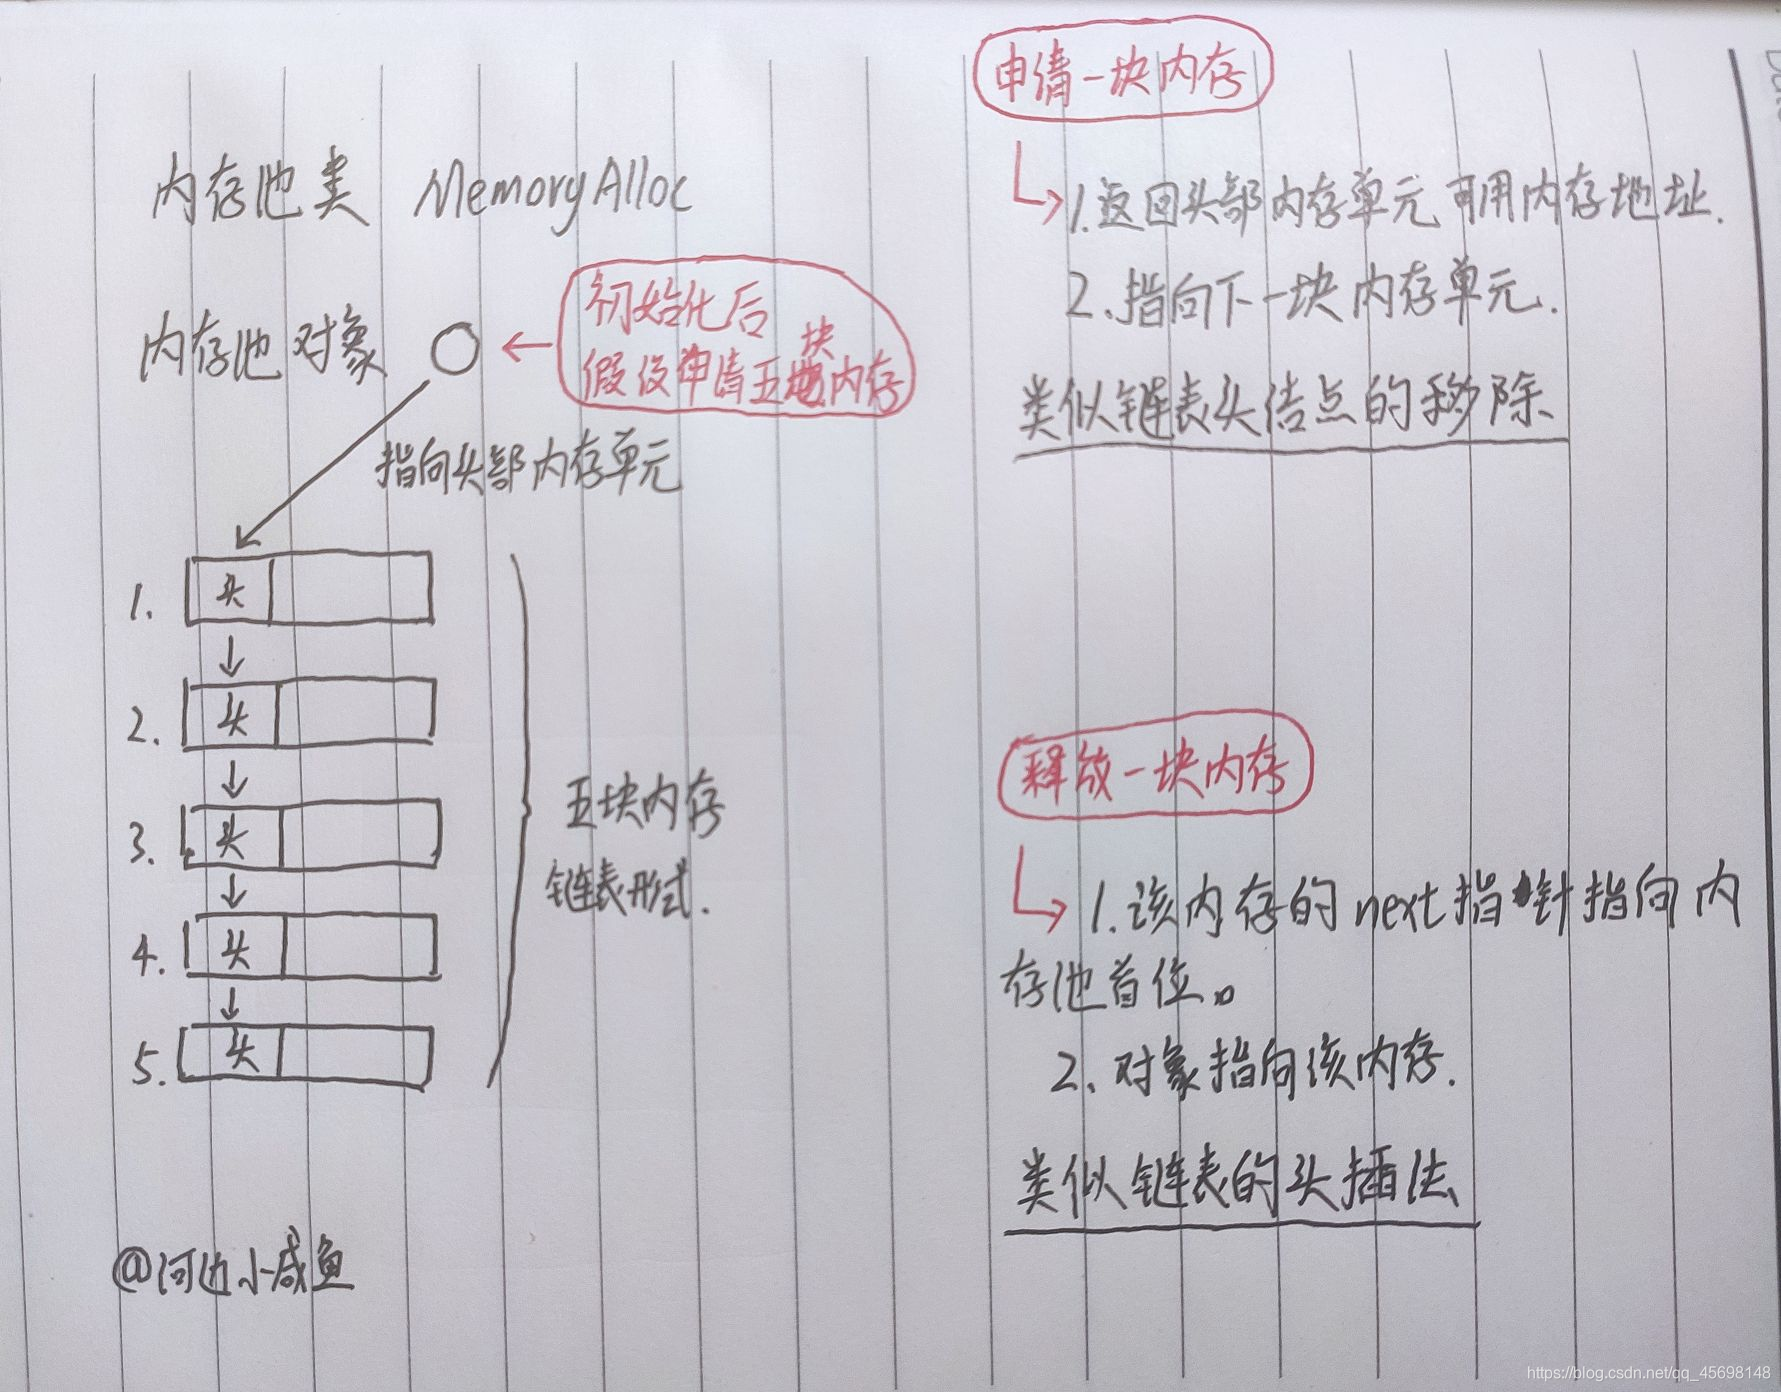 内存池类 MemoryAlloc
内存池对象
初始化后
假设申请五块内存
指向头部内存单元
1. 头
2. 头
3. 头
4. 头
5. 头
五块内存
链表形式.
@河边小咸鱼
申请一块内存
1.返回头部内存单元可用内存地址.
2.指向下一块内存单元.
类似链表头结点的移除
释放一块内存
1.该内存的next指针指向内
存池首位。
2、对象指向该内存.
类似链表的头插法
https://blog.csdn.net/qq_45698148